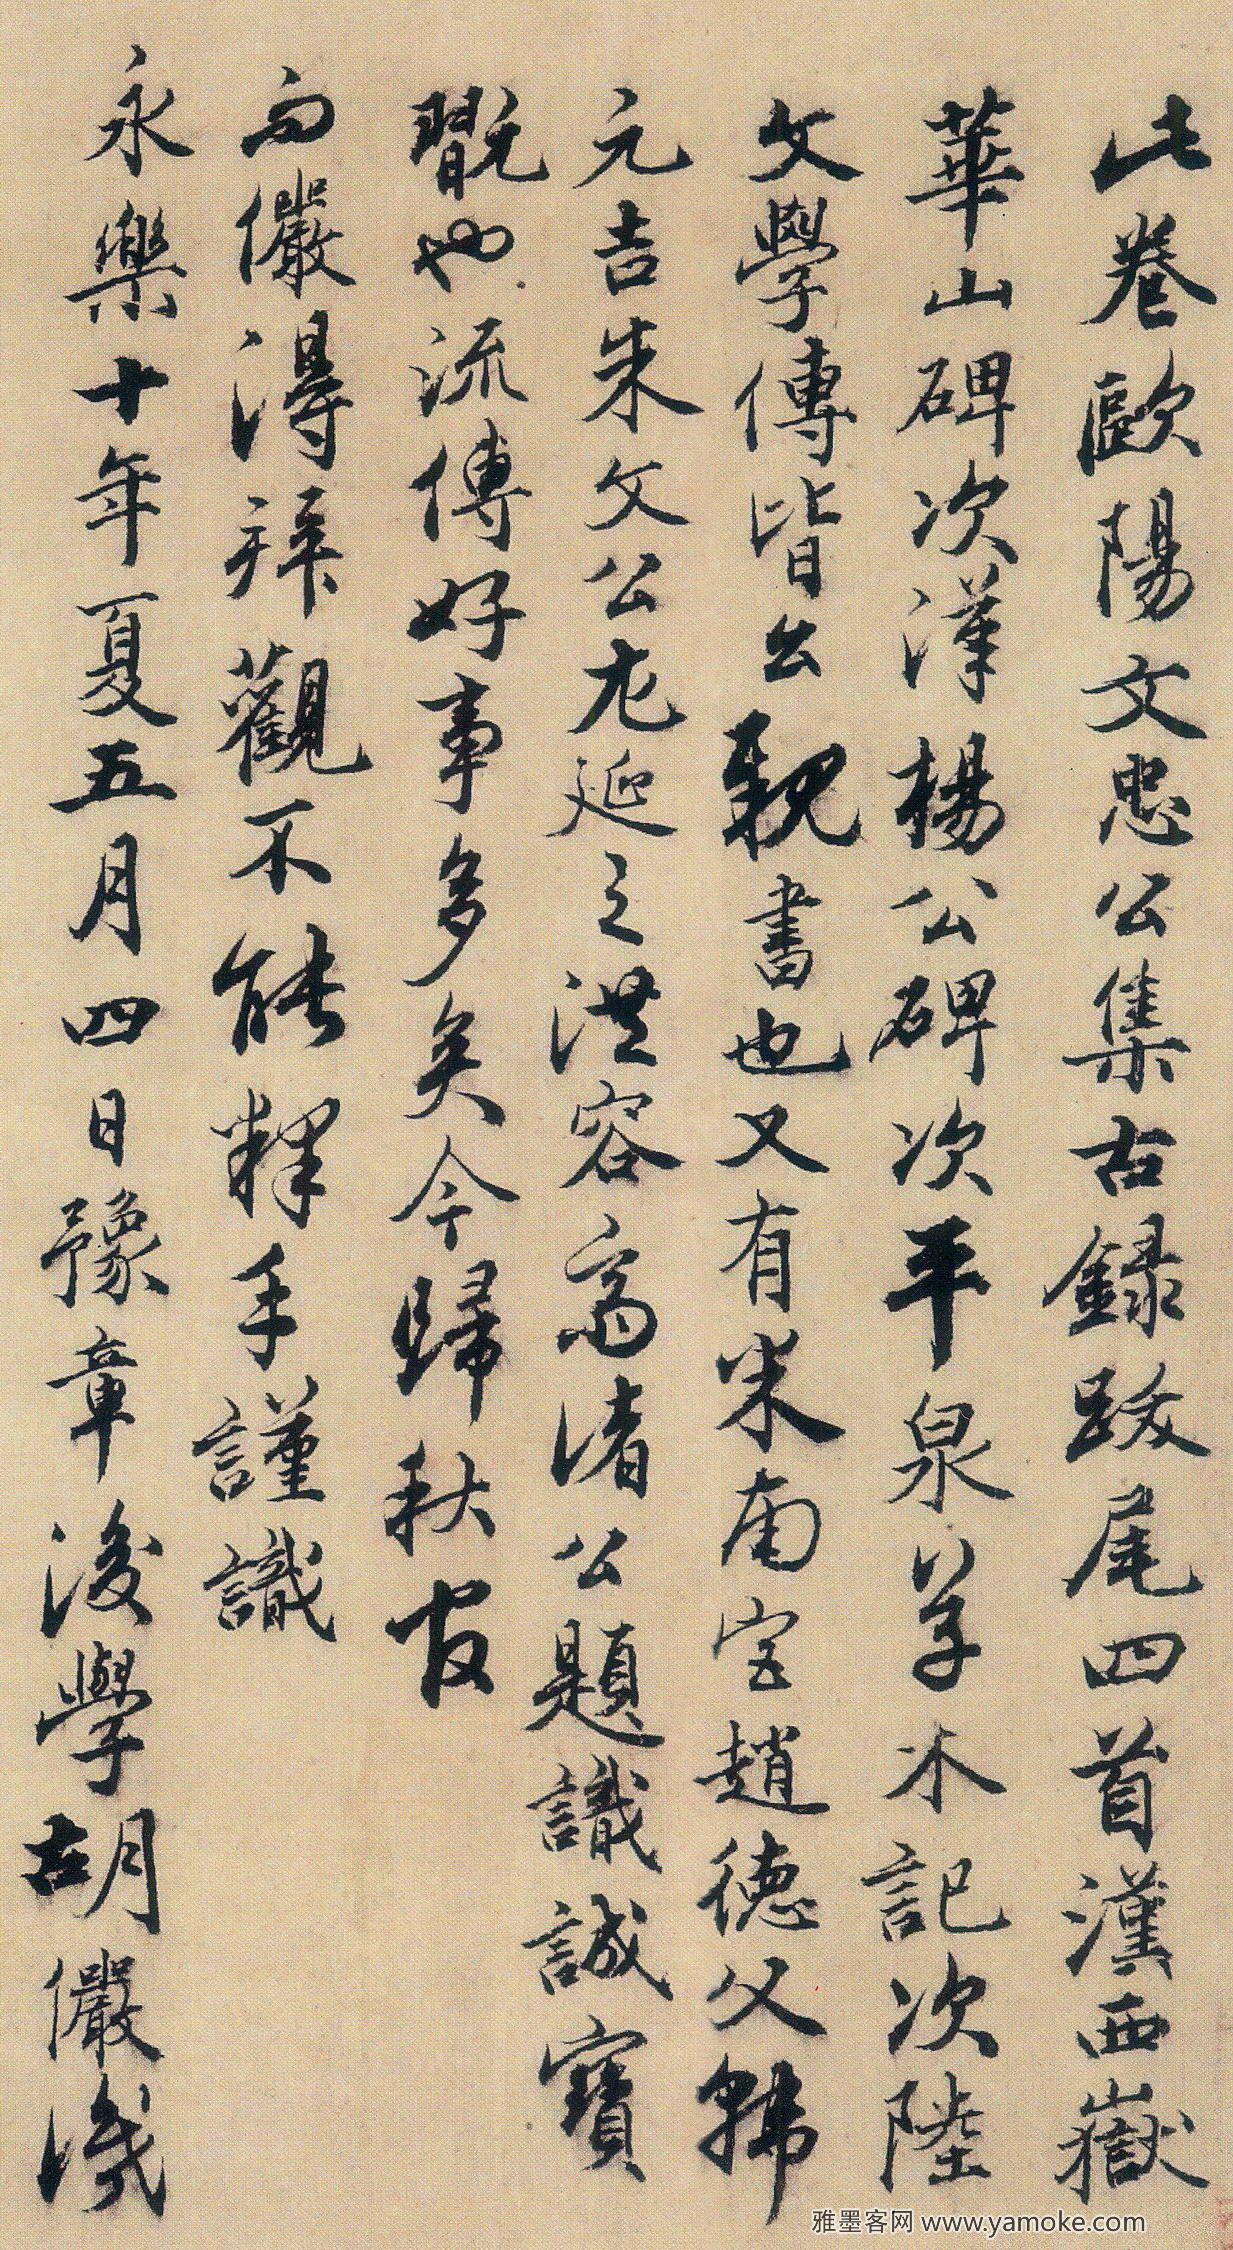 此卷歐陽文忠公集古錄跋尾四首漢西嶽
華山碑次漢楊公碑次平泉草木記次陸
文學傳皆公親書也又有米南宮趙德父韓
元吉朱文公尤延之洪容齋諸公題識誠寶
翫也流傳好事多矣今歸秋官
而儼得拜觀不能釋手謹識
永樂十年夏五月四日豫章後學胡儼識
雅墨客网 www.yamoke.com